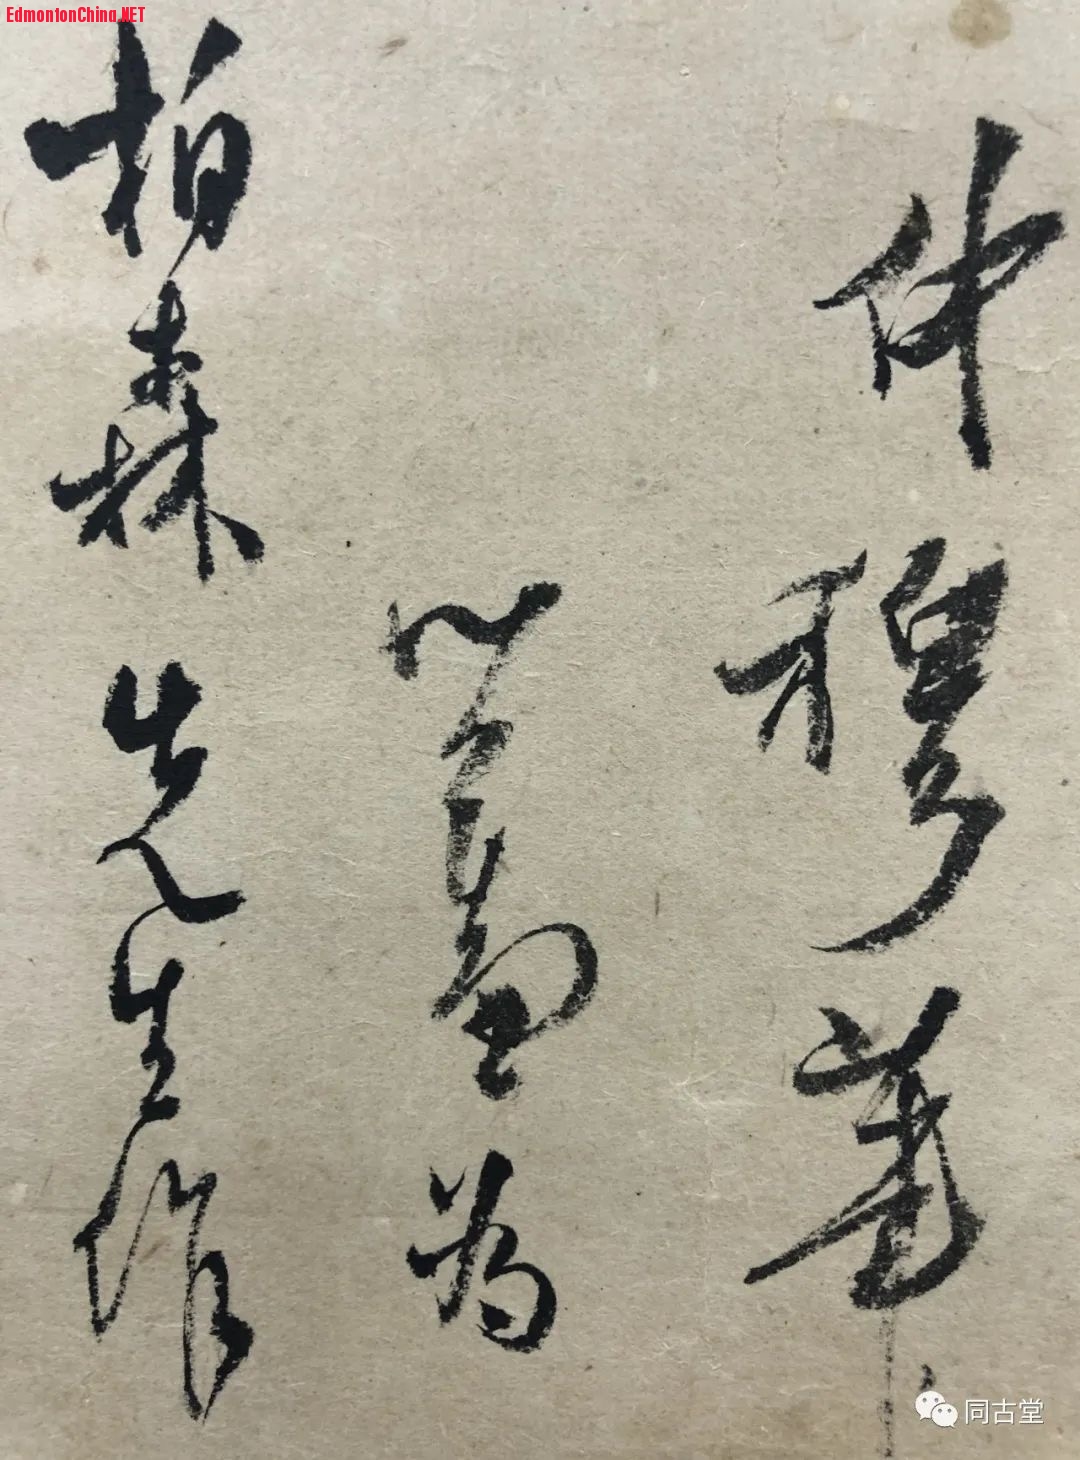 EdmontonChina.NET
仲穆筆
為
柏森先生作
同古堂